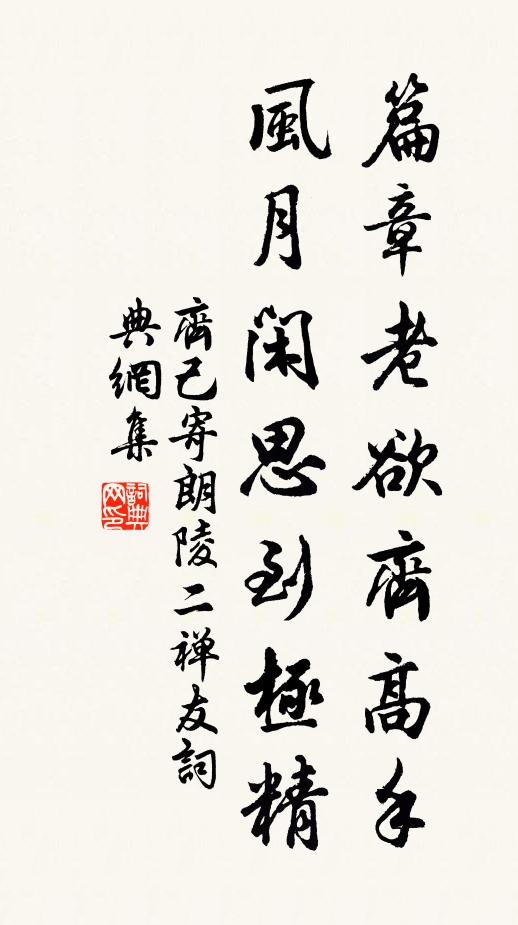 篇章老欲齊高手
風月閑思到極精
齊己寄朗陵二禅友詞
典網集
詞典
网印